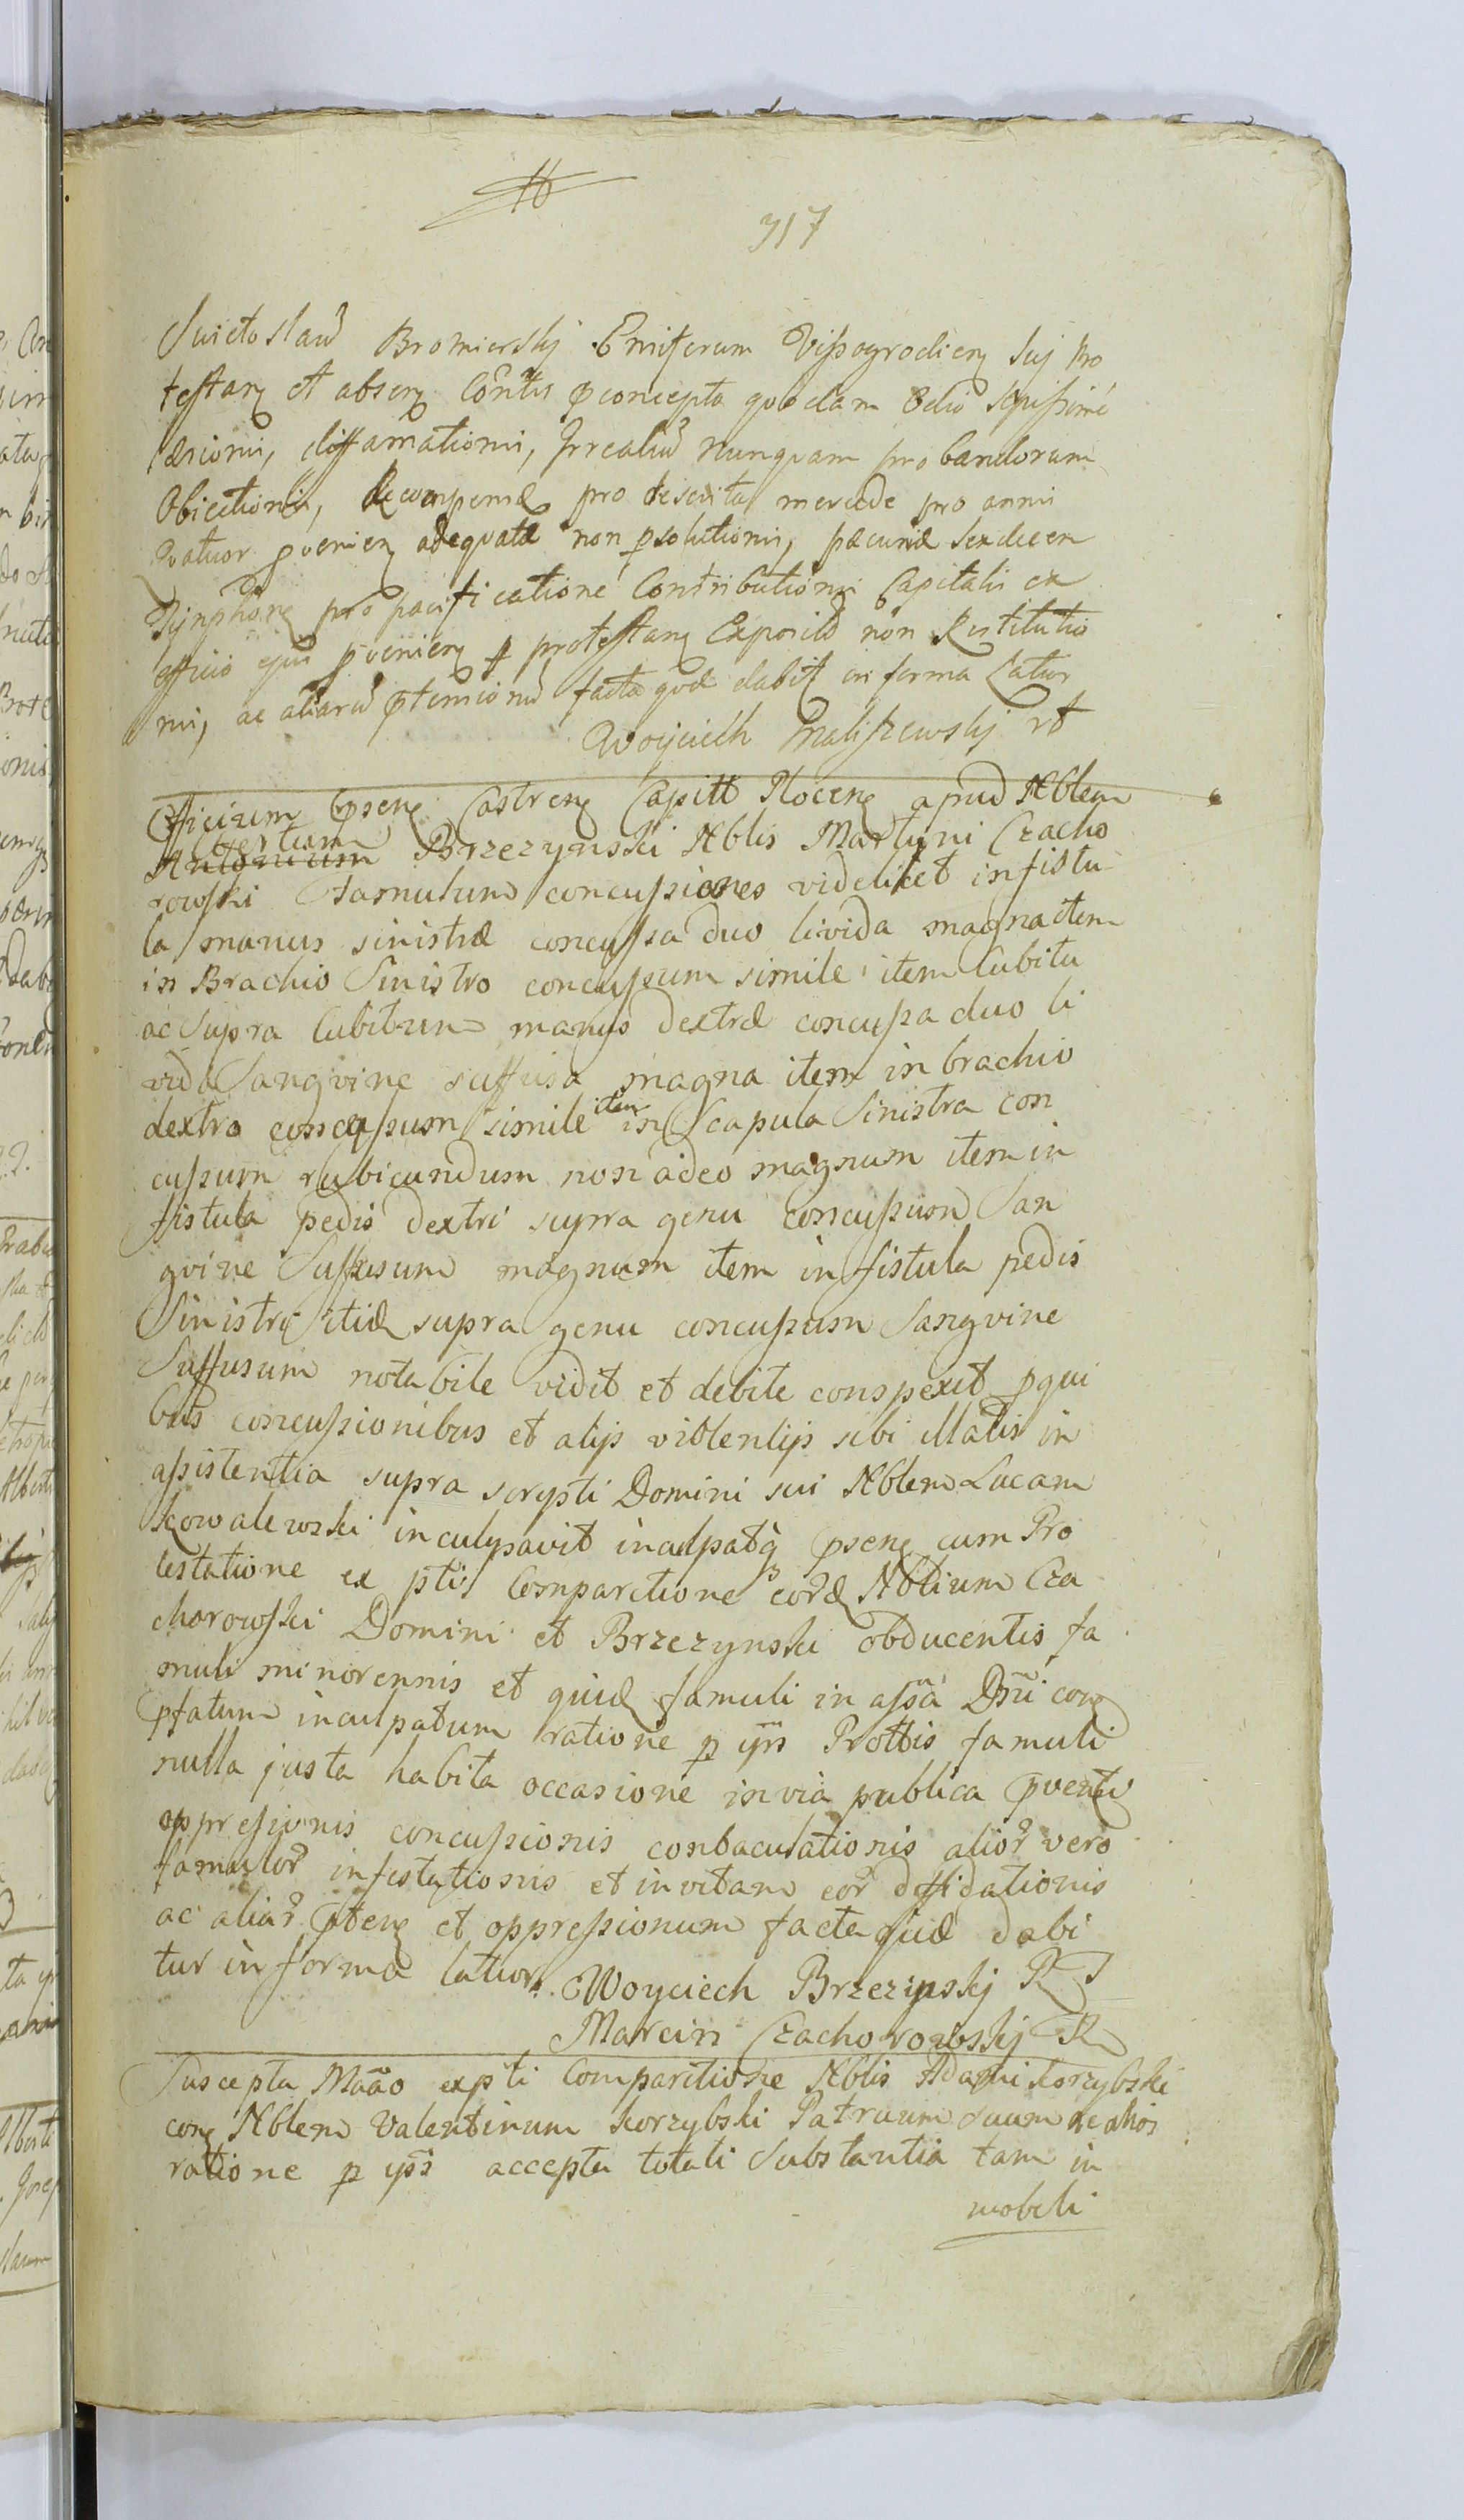 317
Swietoslaŭ Bromierskj Ensiferum Vissogrodien Suj Pro
testan et absen Contis conceptа quodam Odio sepissime
lesionis, diffamationis, Irrealiŭ nunquam probandorum
Obiectionis, Recompensæ pro deservita mercede pro annis
qvatuor pvenien adeqvatæ non psolutionis, pecuniæ sexdecem
Tÿnphon pro pacificatione Contributionis Capitalis ex
officio ejus pvenien p protestan Expositæ non Restitutio
nis, ac aliarŭ ptensionŭ facta qvæ dabit in forma latior
Woyciech Maliszewskj rt
Officium psens Castren Capitt Plocens apud Nblem
Albertum
Antonium Brzezynski Nblis Martyni Czacho
rowski famulum concussiones videlicet in fistu
la manus sinistræ concussa duo livida magna item
in Brachio Sinistro concussum simile item Cubitu
ac Supra Cubitum manus dextræ concussa duo li
vida Sangvine suffusa magna item in brachio
dextro concussum simile item in Scapula Sinistra con
cussum rubicundum non adeo magnum item in
fistula pedis dextri supra genu concussum San
gvine Suffusum magnum item in fistula pedis
Sinistri itid supra genu concussum Sangvine
Suffusum notabile vidit et debite conspexit p qui
bus concussionibus et alijs violentijs sibi illatis in
assistentia supra scrypti Domini sui Nblem Lucam
Kowalewski inculpavit inculpatq psens cum Pro
testatione ex pti Comparitione eord Nblium Cza
chorowski Domini et Brzezynski obducentis fa
muli minorennis et quid famuli in assa Dni con
pfatum inculpatum ratione p ips Prottis famuli
nulla justa habita occasione in via publica pventi
oppressionis concussionis conbaculationis alior vero
famulor infestationis et in vitam eor diffidationis
ac aliar pten et oppressionum facta quæ dabi
tur in forma latior. Woyciech Brzezinskj R J
Marcin Czachorowskj R
Suscepta Maao ex pti Comparitione Nblis Adami Korzybski
con Nblem Valentinum Korzybski Patruum Suum
ratione p ips accepta totali Substantia tam in
mobili